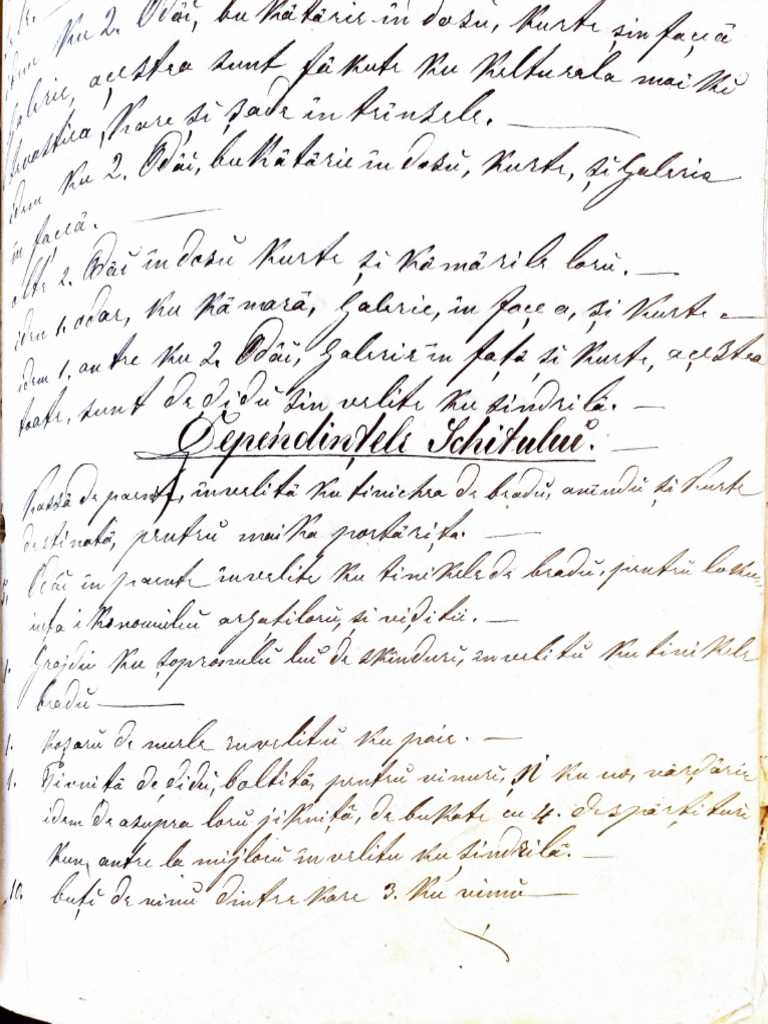 idem ku 2. Odăĭ, bukătărie in dosŭ, kurte, șin façiă
Galerie, açestea sunt făkute ku keltuiala maikĭ
kare și șade in trinsele. —
idem ku 2. Odăĭ, bukătărie in dosŭ, kurte, și Galerie
in façiă. —
alte 2. Odăĭ in dosŭ kurte și kămările lorŭ. —
idem 1. odae, ku kămară, Galerie, in façea, și kurte —
idem 1. antre ku 2. Odăĭ, Galerie in față și kurte, açestea
toate, sunt de didŭ șin velite ku șindrilă. —
Dependințele Schituluĭ. —
Kassă de paente, invelită ku tinichea de bradŭ, avîndŭ și kurte
destinată, pentru maika portărița. —
Odăĭ in paente invelite ku tinikele de bradŭ, pentru loku-
ința ikonomuluĭ argațilorŭ, și viditiĭ. —
1. Grajdiŭ ku șopronulŭ luĭ de skîndurĭ, invelitŭ ku tinikele
bradŭ —
1. koșarŭ de nuele invelitŭ ku paie. —
1. Pivniță de didŭ, boltită, pentru vinurĭ, și ku
idem de asupra lorŭ jikniță, de bukate cu 4. despărțiturĭ
kun antre la mijlocŭ invelitu ku șindrilă. —
10. buțĭ de vinŭ dintre kare 3. ku vinŭ —